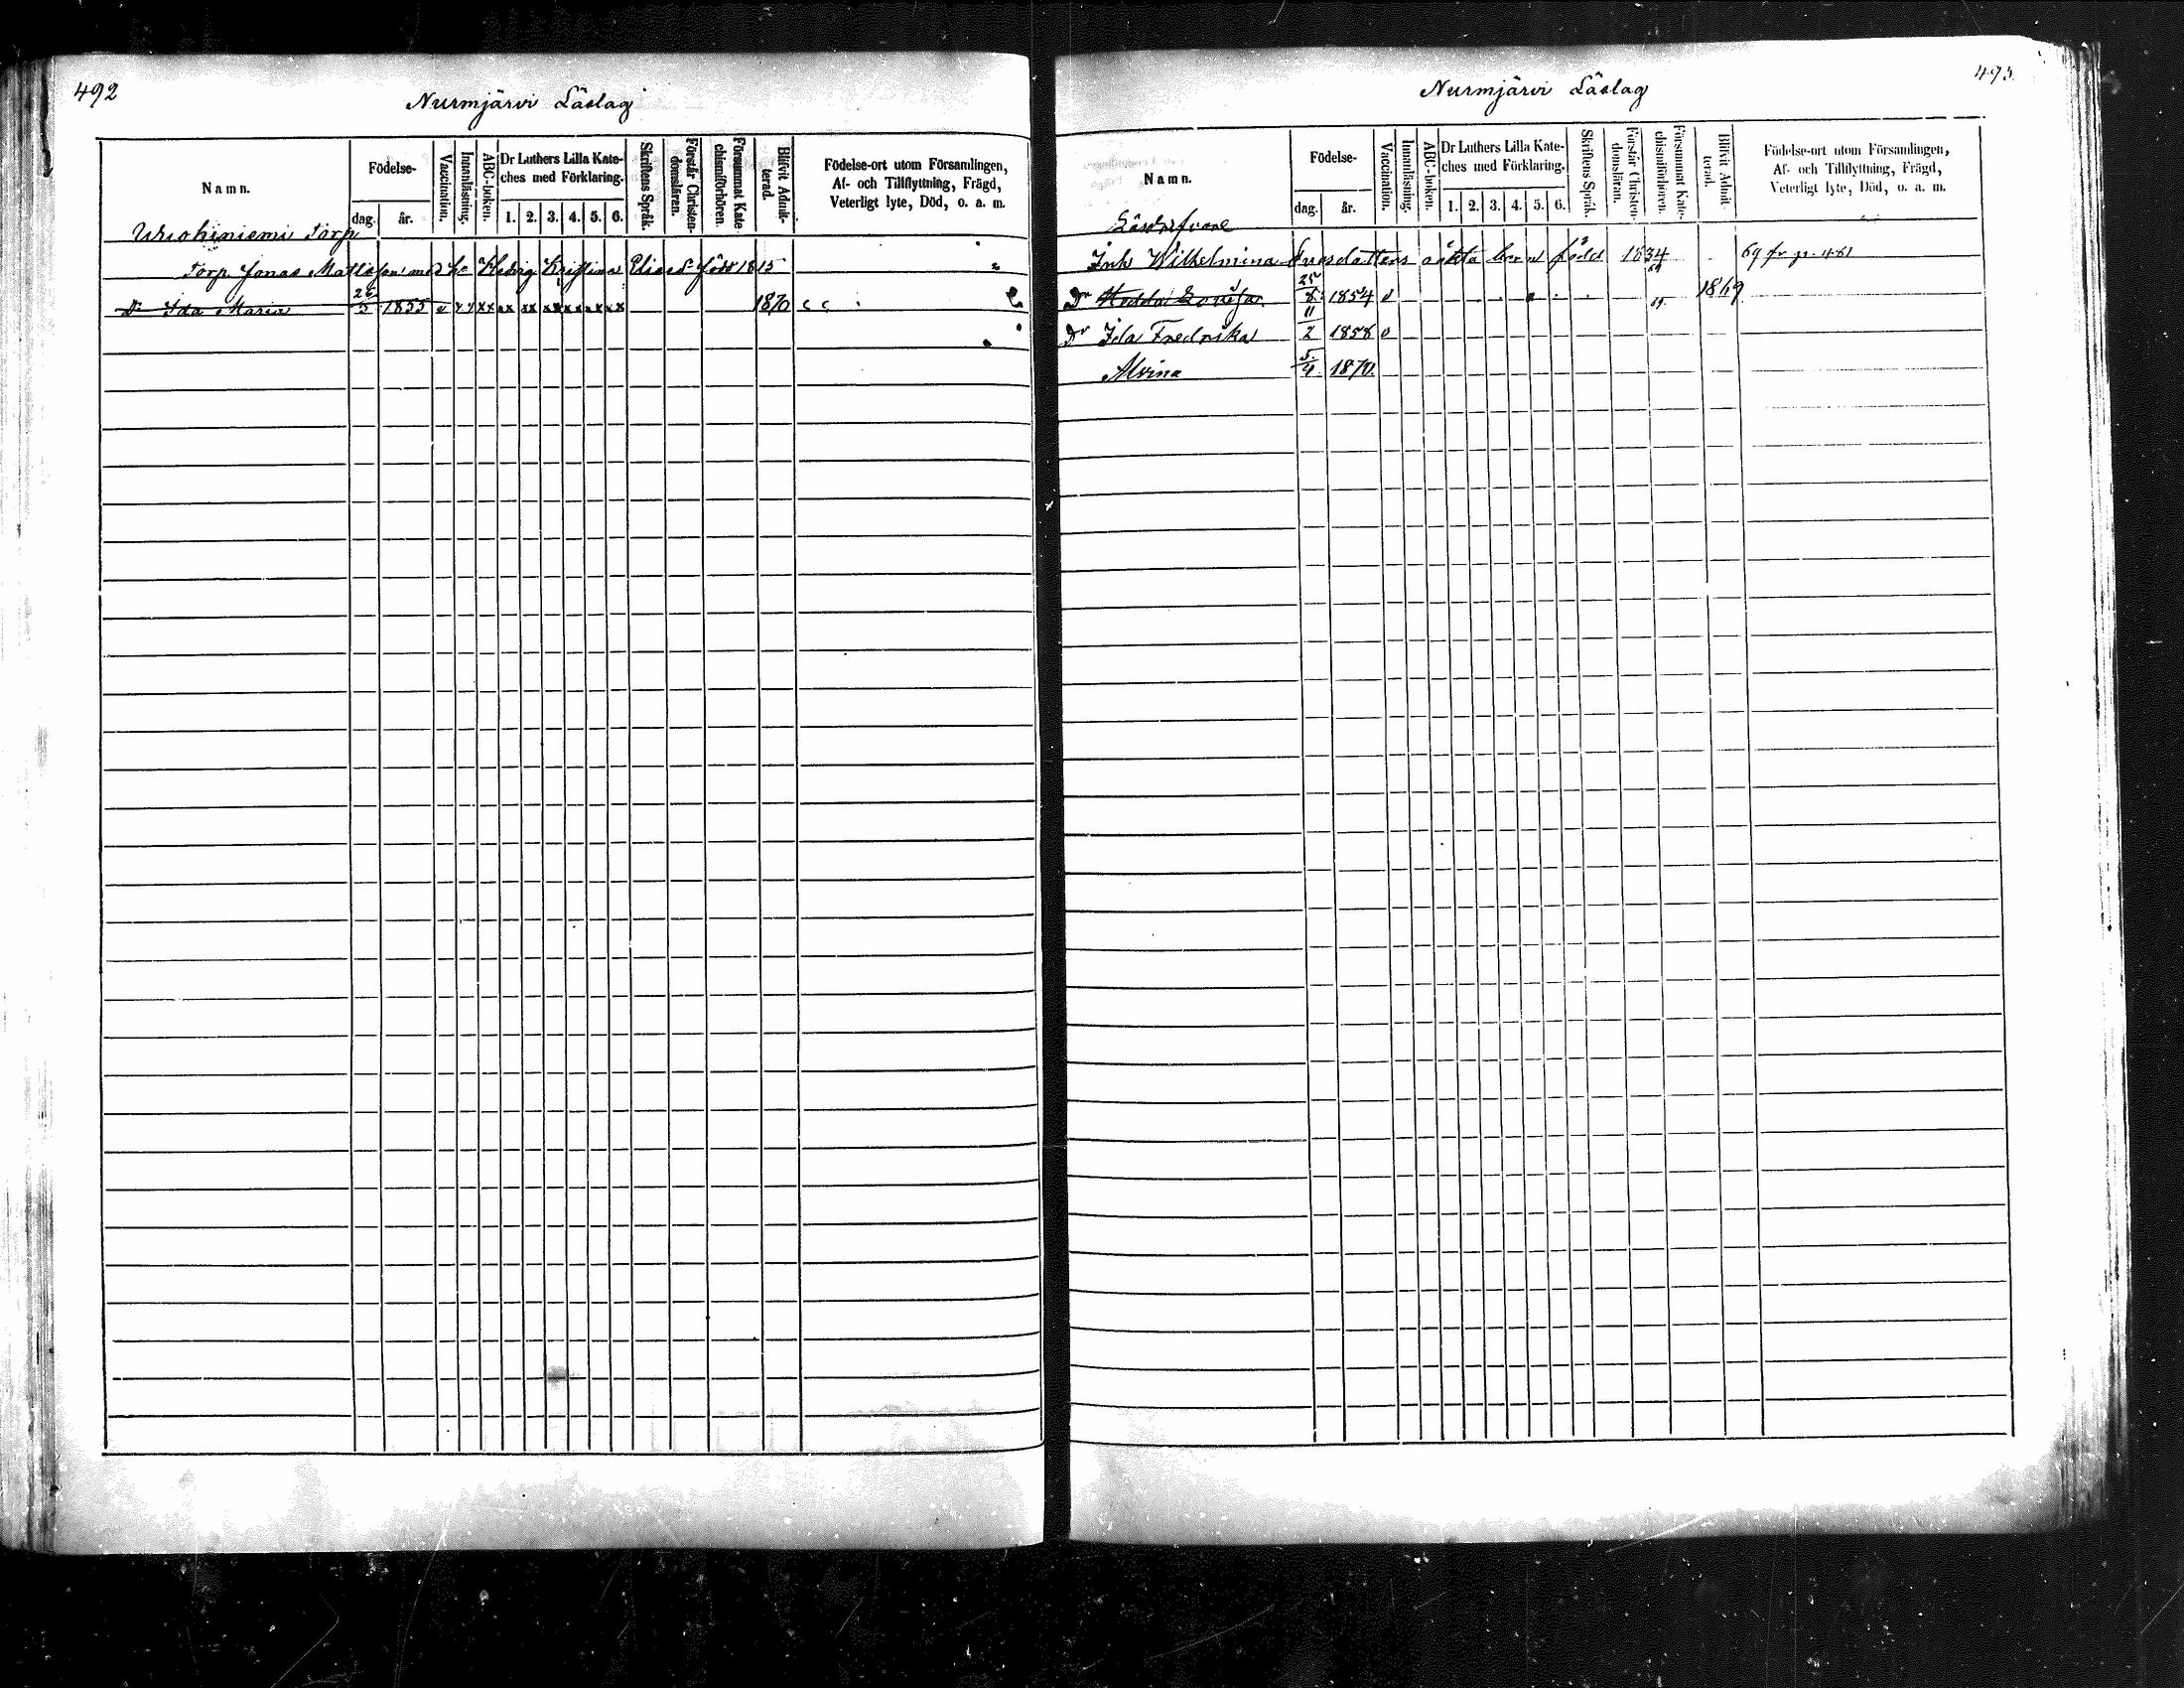 492
Nurmjärvi Läslag
Namn.
Födelse-
dag.
år.
Vaccination.
Innanläsning.
ABC-boken.
Dr Luthers Lilla Kate-
ches med Förklaring.
1. 2. 3. 4. 5. 6.
Skriftens Språk.
Förstår Christen-
domsläran.
Försummat Kate
chismiförhören.
Blifvit Admit-
terad.
Födelse-ort utom Församlingen,
Af- och Tillflyttning, Frägd,
Veterligt lyte, Död, o. a. m.
Torp
Torp. Jonas Mattsson med h: Hedvig Kristina Eliasd: född 1815
Dr Ida Maria 26/5 1855 v xx xx xx xx xx xx xx xx 1870 c c
493
Nurmjärvi Läslag
Namn.
Födelse-
dag.
år.
Vaccination.
Innanläsning.
ABC-boken.
Dr Luthers Lilla Kate-
ches med Förklaring.
1. 2. 3. 4. 5. 6.
Skriftens Språk.
Förstår Christen-
domsläran.
Försummat Kate-
chismiförhören.
Blifvit Admit-
terad.
Födelse-ort utom Församlingen,
Af- och Tillflyttning, Frägd,
Veterligt lyte, Död, o. a. m.
Inh Wilhelmina oäkta barn född 1834 69 fr. p. 461
Dr Hedda Lovisa 25/8 1854 v 69. 1869
Dr Ida Fredrika 11/2 1858 v
Alvina 5/4 1870.